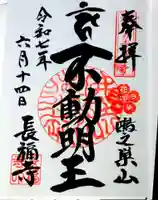 奉拝
湯之嶽山
不動明王
令和七年
六月十四日
長福寺